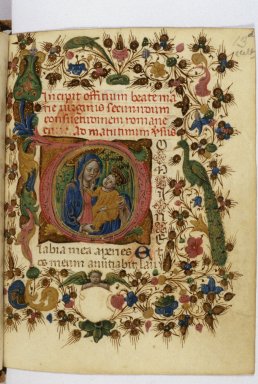 Incipit offitium beate ma
rie virginis secundum
consuetudinem romane
curie. Ad matutinum. versus
DOMINE
labia mea aperies. Et
os meum anuntiabit lau